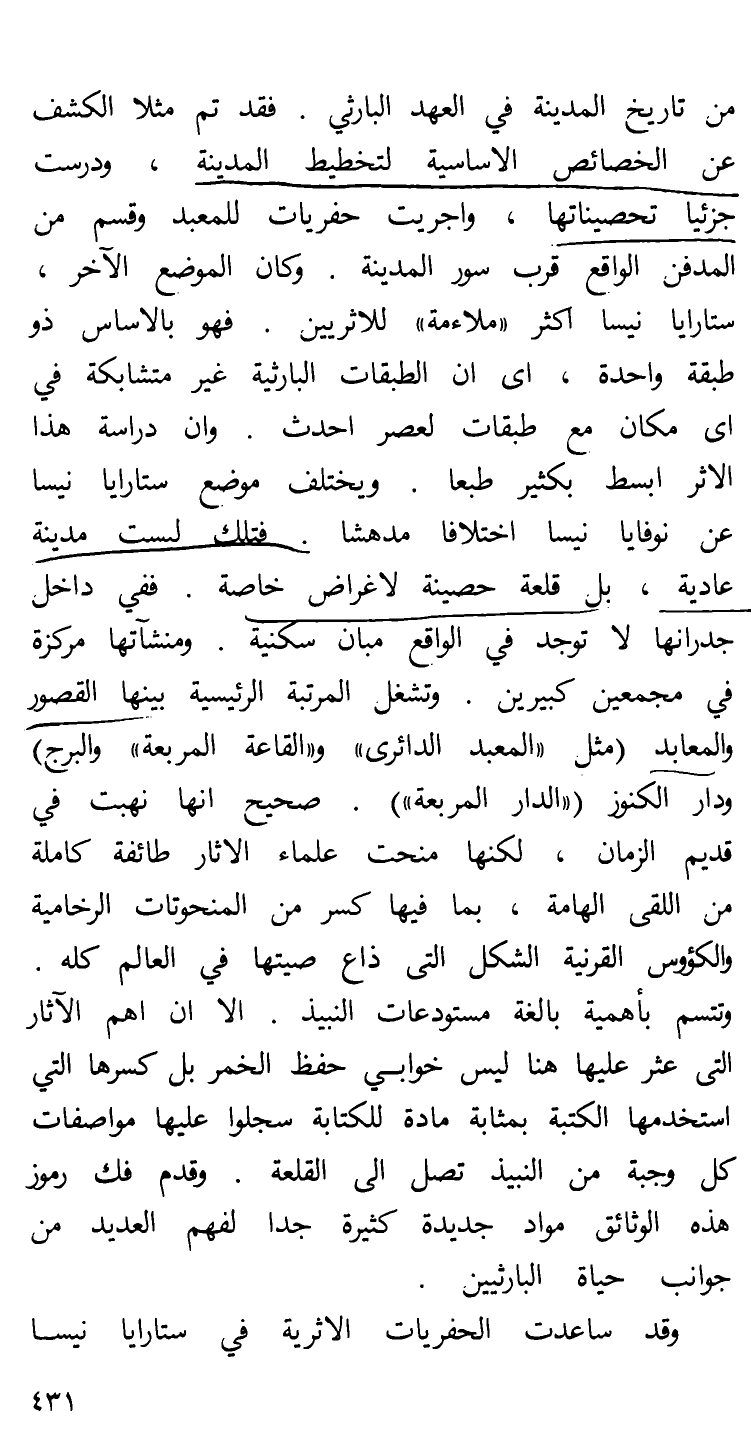 من تاريخ المدينة في العهد البارثي . فقد تم مثلا الكشف
عن الخصائص الاساسية لتخطيط المدينة ، ودرست
جزئيا تحصيناتها ، واجريت حفريات للمعبد وقسم من
المدفن الواقع قرب سور المدينة . وكان الموضع الآخر ،
ستارايا نيسا اكثر «ملاءمة» للاثريين . فهو بالاساس ذو
طبقة واحدة ، اى ان الطبقات البارثية غير متشابكة في
اى مكان مع طبقات لعصر احدث . وان دراسة هذا
الاثر ابسط بكثير طبعا . ويختلف موضع ستارايا نيسا
عن نوفايا نيسا اختلافا مدهشا . فتلك ليست مدينة
عادية ، بل قلعة حصينة لاغراض خاصة . ففي داخل
جدرانها لا توجد في الواقع مبان سكنية . ومنشآتها مركزة
في مجمعين كبيرين . وتشغل المرتبة الرئيسية بينها القصور
والمعابد (مثل «المعبد الدائرى» و«القاعة المربعة» والبرج)
ودار الكنوز («الدار المربعة») . صحيح انها نهبت في
قديم الزمان ، لكنها منحت علماء الاثار طائفة كاملة
من اللقى الهامة ، بما فيها كسر من المنحوتات الرخامية
والكؤوس القرنية الشكل التى ذاع صيتها في العالم كله .
وتتسم بأهمية بالغة مستودعات النبيذ . الا ان اهم الآثار
التى عثر عليها هنا ليس خوابي حفظ الخمر بل كسرها التي
استخدمها الكتبة بمثابة مادة للكتابة سجلوا عليها مواصفات
كل وجبة من النبيذ تصل الى القلعة . وقدم فك رموز
هذه الوثائق مواد جديدة كثيرة جدا لفهم العديد من
جوانب حياة البارثيين .
وقد ساعدت الحفريات الاثرية في ستارايا نيسا
٤٣١